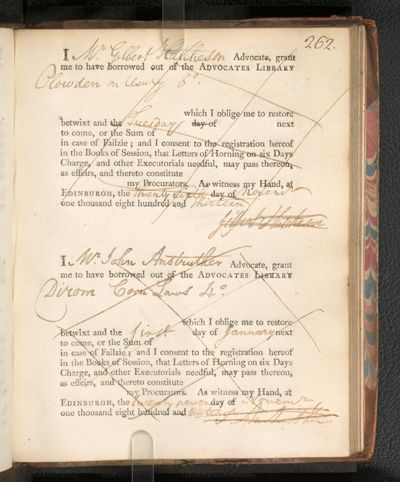 262.
I Mr. Gilbert Hutcheson Advocate, grant
me to have borrowed out of the ADVOCATES LIBRARY
Plowden on Usury 8o
which I oblige me to restore
betwixt and the Tuesday day of next
to come, or the Sum of
in case of Failzie; and I consent to the registration hereof
in the Books of Session, that Letters of Horning on six Days
Charge, and other Executorials needful, may pass thereon,
as effeirs, and thereto constitute
my Procurators. As witness my Hand, at
EDINBURGH, the twenty sixth day of Novemr
one thousand eight hundred and thirteen
I Mr. John Anstruther Advocate, grant
me to have borrowed out of the ADVOCATES LIBRARY
Dirom Corn Laws 4o
which I oblige me to restore
betwixt and the first day of January next
to come, or the Sum of
in case of Failzie; and I consent to the registration hereof
in the Books of Session, that Letters of Horning on six Days
Charge, and other Executorials needful, may pass thereon,
as effeirs, and thereto constitute
my Procurators. As witness my Hand, at
EDINBURGH, the twenty seven day of Novemr
one thousand eight hundred and thirteen